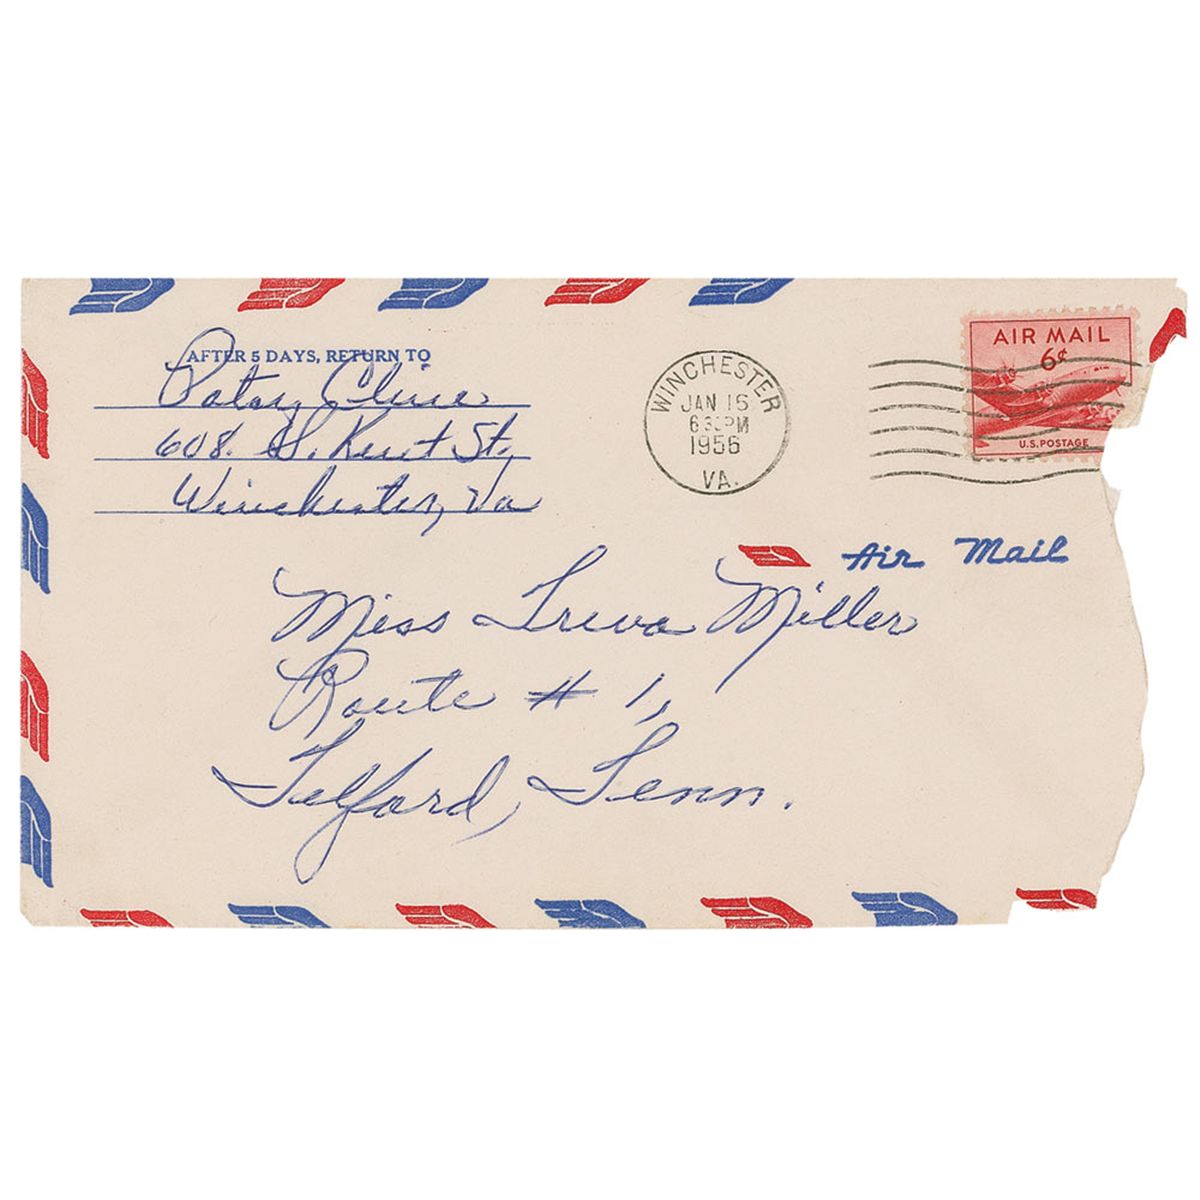 AFTER 5 DAYS, RETURN TO
Patsy Cline
608. S. Kent St.,
Winchester, Va
WINCHESTER
JAN 16
6 30 PM
1956
VA.
AIR MAIL
6¢
U.S. POSTAGE
Air Mail
Miss Treva Miller
Route # 1,
Telford, Tenn.